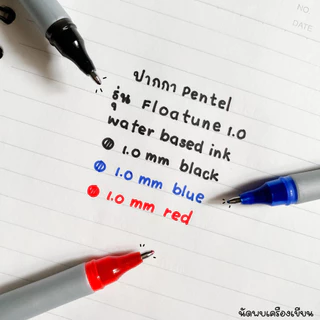 NO.
DATE
ปากกา Pentel
รุ่น Floatune 1.0
water based ink
1.0 mm black
1.0 mm blue
1.0 mm red
นัดพบเครื่องเขียน